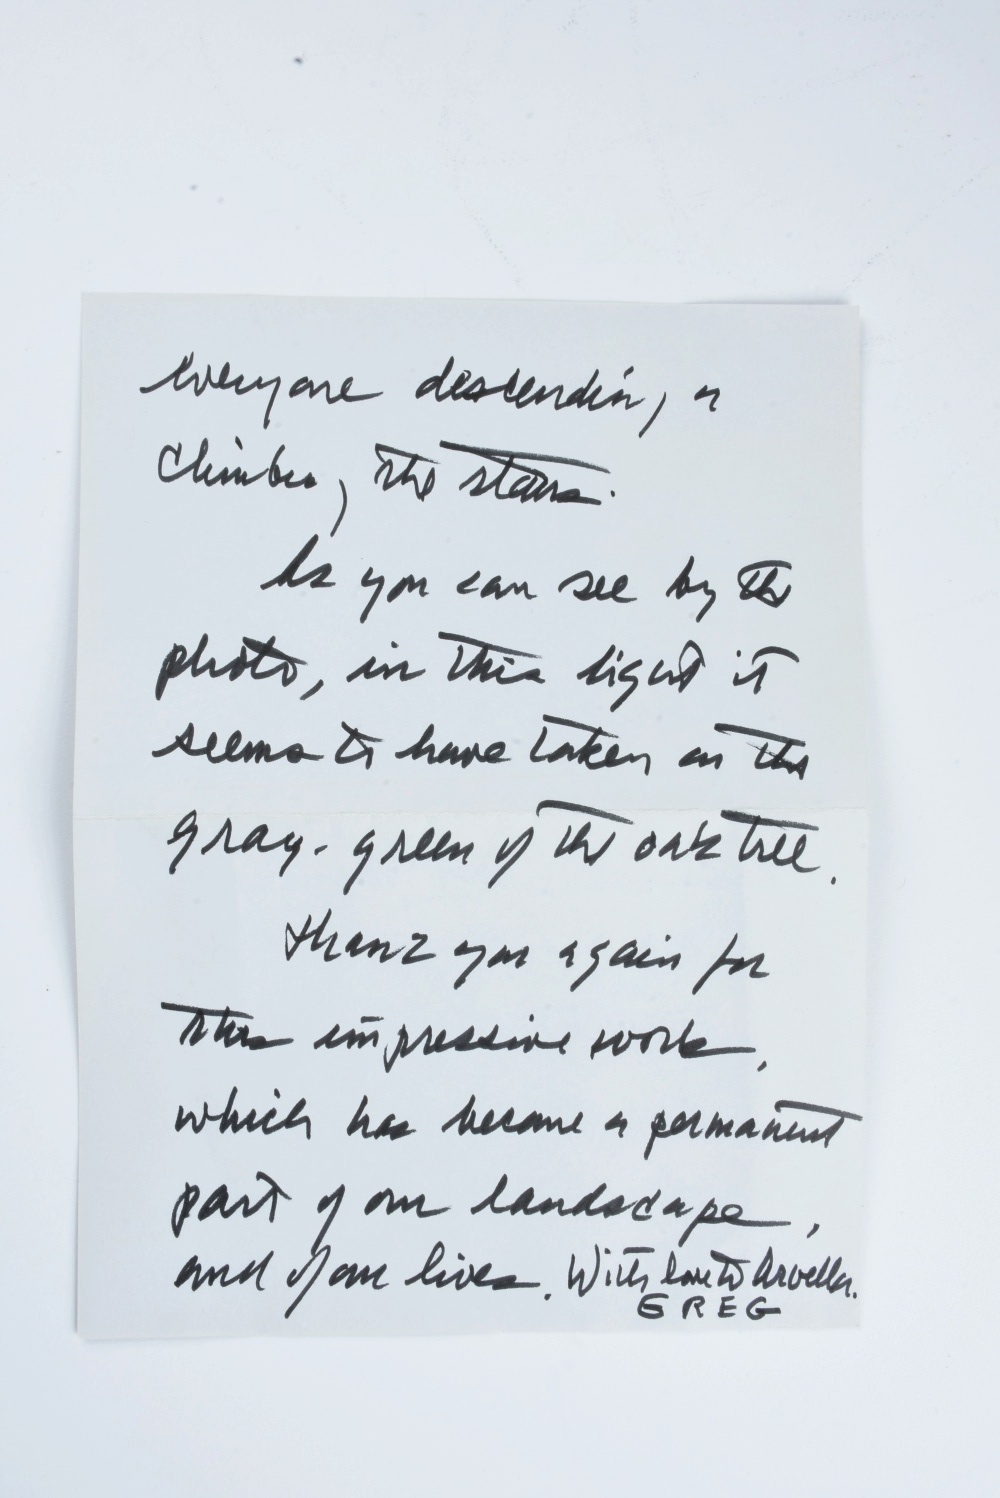 everyone descending, or
climbing, the stairs.
As you can see by the
photo, in this light it
seems to have taken on the
gray-green of the oak tree.
Thank you again for
this impressive work,
which has become a permanent
part of our landscape,
and of our lives. With love to Arvella.
GREG